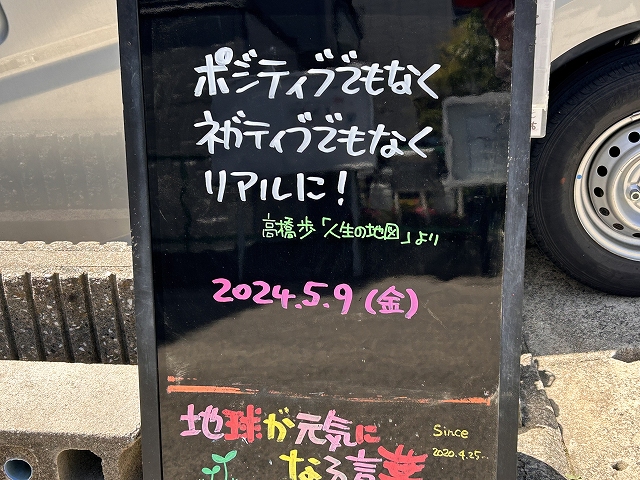 ポジティブでもなく
ネガティブでもなく
リアルに!
高橋歩「人生の地図」より
2024.5.9(金)
地球が元気に
なる言葉
Since
2020.4.25...